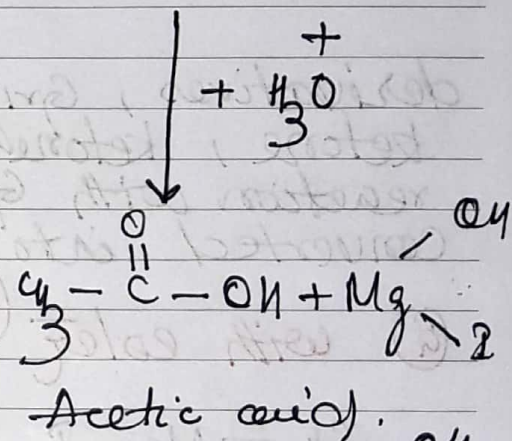 + H₃O⁺
O
||
CH₃ – C – OH + Mg
OH
I
Acetic acid.